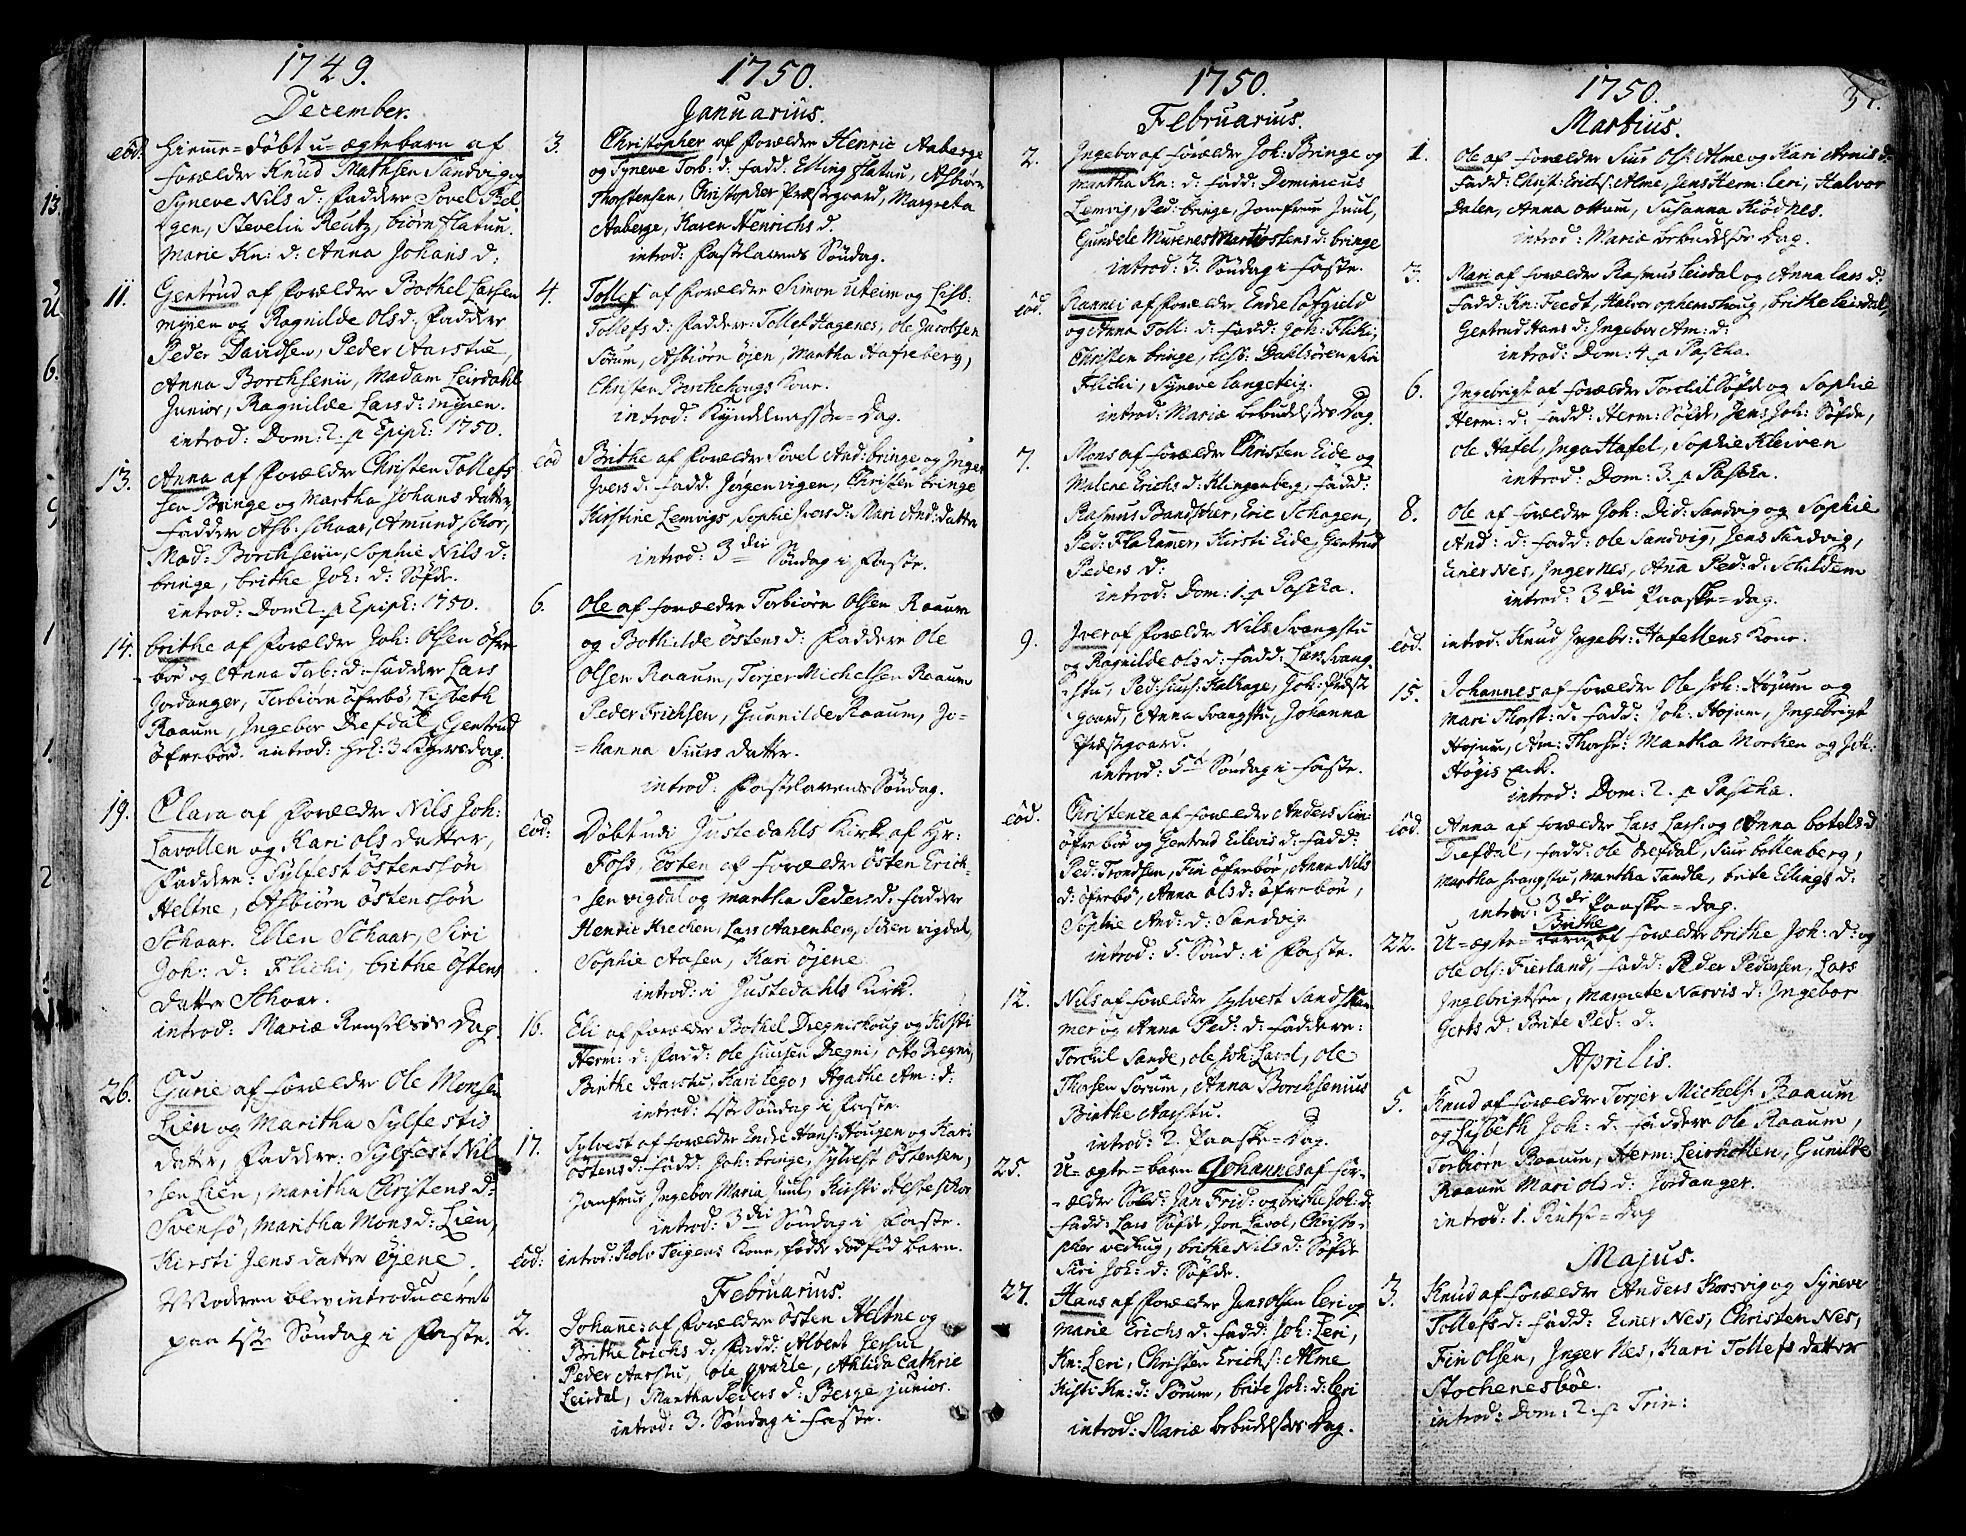 1749.
December.
eod. hieme=døbt u=ægte barn af
forældre Knud Mathsen Sandvig og
Syneve Nils d: Faddere Sovel Bel
gen, Stevelin Reutz, biørn flatun.
Marie Kn: d: Anna Johans d:
11. Gertrud af Forældre Bothel Larsen
myren og Ragnilde Ols d: Faddere
Peder Davidsen, Peder Aarstue,
Anna Borchsenii, Madam Leirdahl
Junior, Ragnilde Lars d: myren.
introd: Dom: 2. p Epiph: 1750.
13. Anna af Forældre Christen Tollefs
sen Bringe og Martha Johans datter,
Faddere Asb: Schaar, Amund Schor,
Mad: Borchsenii, Sophie Nils d:
bringe, brithe Joh: d: Søfde.
introd: Dom 2. p Epiph: 1750.
14. brithe af Forældre Joh: Olsen öfre
böe og Anna Torb: d: Faddere Lars
Jordanger, Torbiørn öfrebö, Lisbeth
Raaum, Ingebor Drefdal, Gertrud
öfreböe. introd: Hel: 3 Kongersdag.
19. Clara af Forældre Nils Joh:
Lavollen og Kari Ols datter,
Faddere: Sylfest Östenssön
Heltne, Asbiørn Östenssön
Schaar. Ellen Schaar, Siri
Joh: d: Flichi, brithe Östens
datter Schaar.
introd: Mariæ Renselses Dag
26. Gurie af forældre Ole Monsen
Lien og Maritha Sylfestis
datter, Faddere: Sylfest Nil
sen Lien, Maritha Christens d:
Svensö, Maritha Mons d: Lien,
Kirsti Jens datter Öjene.
Moderen blev introduceret
paa 1ste Söndag i Faste.
1750.
Januarius.
3. Christopher af Forældre Henric Aaberge
og Syneve Torb: d: Fadd: Elling flatun, Asbiørn
Thorstensen, Christopher Præstegaard, Margreta
Aaberge, Karen Henrichs d.
introd: Fastelavens Söndag.
4. Tollef af Forældre Simon uteim og Lisb:
Tollefs d: Faddere: Tollef Hagenes, Ole Jacobsen
Sørum, Asbiørn öjen, Martha Hafreberg,
Christen Borchehougs Kone.
introd: Kyndelmisse=Dag.
eod Brithe af Forældre Sovel And: bringe og Inger
Ivers d: Fadd: Jørgen vigen, Christen bringe
Kirstine Lemvigs, Sophie Ivers d: Mari And: datter
introd: 3die Söndag i Faste.
6. Ole af Forældre Torbiørn Olsen Raaum
og Bothilde Östens d: Faddere Ole
Olsen Raaum, Torjer Michelsen Raaum
Peder Erichsen, Gunnilde Raaum, Jo=
=hanna Siurs datter.
introd: Fastelavens Söndag.
eod: Döbt udi Justedahls Kirk af Hr:
Foss, Esten af Forældre Östen Erich
sen vigdal og Martha Peders d: Faddere
Henric Krechen, Lars Aarenberg, Sören vigdal,
Sophie Aasen, Kari Öjene
introd: i Justedahls Kirk.
16. Eli af Forældre Bothel Dregnishoug og Kisti
Herm: d: Fadd: Ole Siursen Dregni, Otto Dregni,
Birthe Aarstue, Kari Lego, Agathe Am: d:
introd: 1ste Söndag i Faste.
17. Sylvest af forældre Endre Hans: Hougen og Kari
Östens d: Fadd: Joh: bringe, Sylvest Östensen,
Jomfrue Ingebor Maria Juul, Kirsti Schor
introd: 3die Söndag i Faste.
eod: introd: Rolv Teigens Kone, födte dödföd barn.
Februarius.
2. Johanne: af Forældre Östen Heltne og
Brithe Erichs d: Fadd: Albert Jersin
Peder Aarstu, Ole qvale, Ahlida Cathrie
Leirdal, Martha Peders d: Berge junior.
introd: 3. Söndag i Faste.
1750.
Februarius.
2. Ingebor af Forældre Joh: Bringe og
Martha Kn: d: Fadd: Dominicus
Lemvig, Ped: bringe, Jomfrue Juul,
Gundele Murenes Marte Östens d: bringe
introd: 3. Söndag i Faste.
eod. Rannei af Forældre Endre Löfgield
og Anna Toll: d: Fadd: Joh: Flichi,
Christen bringe, Lisb: Dahlsören Siri
Flichi, Syneve Langeteig.
introd: Mariæ bebudelses Dag
7. Mons af Forældre Christen Eide og
Malene Erichs d: Klingenberg, Fadd:
Rasmus Bandscher, Eric Schagen,
Ped: Flahammer, Kirsti Eide, Gertrud
Peders d:
introd: Dom: 1. p Pascha.
9. Iver af Forældre Nils Svangstu
og Ragnilde Ols d: Fadd: Lars Svang
stu, Ped: Siurs: Kalhage, Joh: Præst
gaard, Anna Svangstu, Johanna
Præstegaard.
introd: 5te Söndag i Faste.
eod. Christence af Forældre Anders Sim:
öfreböe og Gertrud Eilevis d: Fadd:
Ped: Trondsen, Fin öfreböe, Anna Nils
d: öfrebö, Anna Ols d: öfreböe,
Sophie And: d: Sandvig.
introd: 5. Sönd: i Faste.
12. Nils af Forældre Sylvest Sandham
mer og Anna Ped: d: Faddere:
Torchil Sande, Ole Joh: Lavol, Ole
Thorsen Sorum, Anna Borchsenius
Birthe Aarstu.
introd: 2. Paaske=Dag.
25. U=ægte=barn Johannes af for=
ældre Sold: Jan Frid: og brithe Joh: d:
Fadd: Lars Söfde, Jon Lavol, Christo=
pher vedhug, brithe Nils d: Söfde
Siri Joh: d: Söfde.
27. Hans af Forældre Jens Olsen Leri og
Marie Erichs d: Fadd: Joh: Leri,
Kn: Leri, Christen Erichs: Alme
Kisti Kn: d: Sorum, brite Joh: d: Leri
introd: Mariæ bebudelses Dag.
1750.
Martius.
1. Ole af Forældre Siur Ols: Alme og Kari Arnis d:
Fadd: Christ: Erichs: Alme, Jens Herm: Leri, Halvor
Dalen, Anna Ottum, Susanna Kiödnes.
introd: Mariæ bebudelses Dag.
3. Mari af Forældre Rasmus Leirdal og Anna Lars d:
Fadd: Kn: Feedt, Halvor ophemshoug, brithe Leirdal,
Gertrud Hans d: Ingebor Am: d:
introd: Dom: 4. p Pascha.
6. Ingebrigt af Forældre Torchil Söfde og Sophie
Herm: d: Fadd: Herm: Söfde, Jens Joh: Söfde,
Ole Hafel, Inga Hafel, Sophie Kleiven
introd: Dom: 3. p Pascha.
8. Ole af Forældre Joh: Did: Sandvig og Sophie
And: d: Fadd: Ole Sandvig, Jens Sandvig,
Einer Nes, Inger Nes, Ana Ped: d: Schildem
introd: 3die Paaske=Dag.
eod. introd: Knud Ingebr: Hafellens Kone.
15. Johannes af Forældre Ole Joh: Höjum og
Mari Thorst: d: Fadd: Joh: Höjum, Ingebrigt
Höjum, Am: Thorse: Martha Morken og Joh:
Högis enk.
introd: Dom: 2. p Pascha.
eod. Anna af Forældre Lars Lars: og Anna botels d
Drefdal, Fadd: Ole Drefdal, Siur bollenberg,
Martha Svangstu, Martha Tandle, brite Ellings d:
introd: 3die Paaske=Dag.
22. U=ægte=barn Brithe af Forældre brithe Joh: d: og
Ole Ols: Fierland, Fadd: Peder Pedersen, Lars
Ingebrigtsen, Margrete Narvis d: Ingebor
Gerts d: Brite Ped: d.
Aprilis.
5. Knud af Forældre Torjer Michels: Raaum
og Lisbeth Joh: d: Faddere Ole Raaum,
Torbiörn Raaum, Herm: Leirhollen, Gunilde
Raaum Mari Ols d: Jordanger.
introd: 1. Pintse=Dag
Majus.
3. Knud af Forældre Anders Korsvig og Syneve
Tollefs d: Fadd: Einer Nes, Christen Nes,
Fin Olsen, Inger Nes, Kari Tollefs datter
Stochenesböe.
introd: Dom: 2. p Trin: